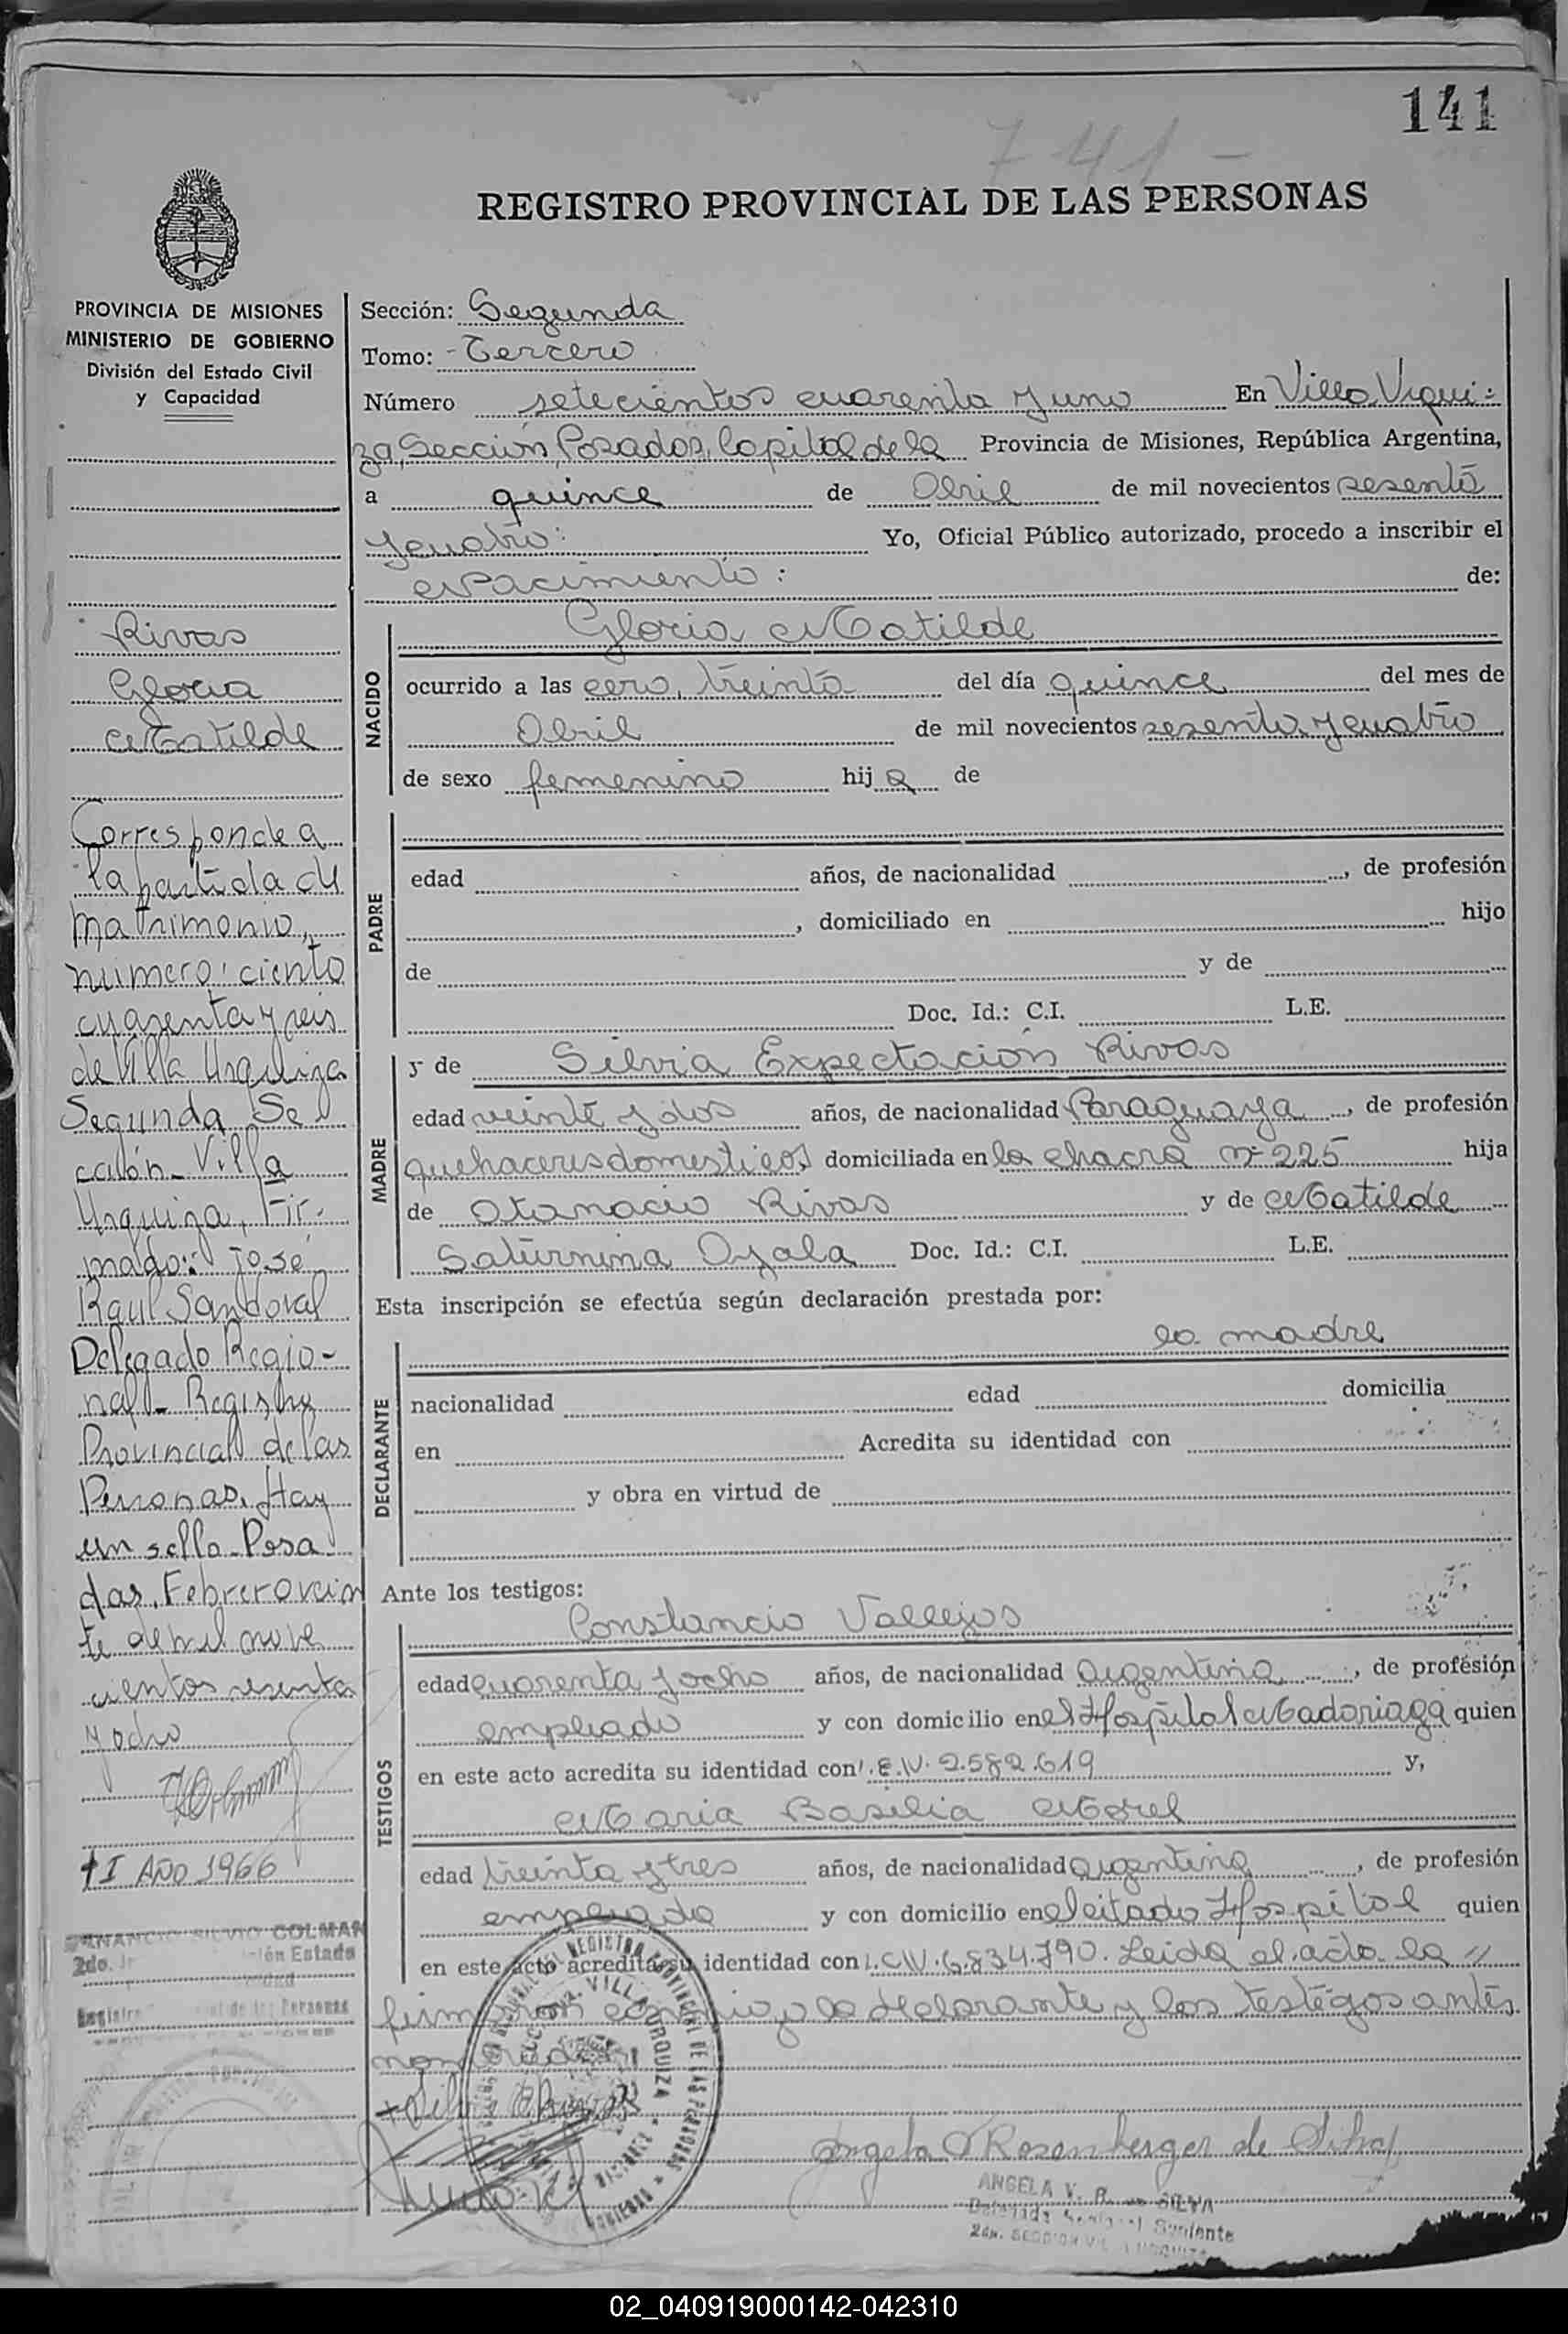 141
741-
REGISTRO PROVINCIAL DE LAS PERSONAS
PROVINCIA DE MISIONES
MINISTERIO DE GOBIERNO
División del Estado Civil
y Capacidad
Rivas
Gloria
Matilde
Corresponde a
la partida de
matrimonio,
número: ciento
cuarenta y seis
de Villa Urquiza
Segunda Se
cción - Villa
Urquiza, Fir-
mado: José
Raul Sandoval
Delegado Regio-
nal - Registro
Provincial de las
Personas. Hay
un sello - Posa
das, Febrero vein
te de mil nove
cientos sesenta
y ocho
I AÑO 1966
SILVIO COLMAN
2do.
Estado
Sección: Segunda
Tomo: - Tercero
Número setecientos cuarenta y uno En Villa Urqui-
za, Sección, Posadas, Capital de la Provincia de Misiones, República Argentina,
a quince de Abril de mil novecientos sesenta
y cuatro: Yo, Oficial Público autorizado, procedo a inscribir el
Nacimiento: de:
NACIDO
Gloria Matilde
ocurrido a las cero, treinta del día quince del mes de
Abril de mil novecientos sesenta y cuatro
de sexo femenino hij a de
PADRE
edad años, de nacionalidad , de profesión
, domiciliado en hijo
de y de
Doc. Id.: C.I. L.E.
MADRE
y de Silvia Expectación Rivas
edad veinte y dos años, de nacionalidad Paraguaya, de profesión
quehaceres domesticos domiciliada en la chacra nº 225 hija
de Atanacio Rivas y de Matilde
Saturnina Ayala Doc. Id.: C.I. L.E.
Esta inscripción se efectúa según declaración prestada por:
DECLARANTE
la madre
nacionalidad edad domicilia
en Acredita su identidad con
y obra en virtud de
Ante los testigos:
TESTIGOS
Constancio Vallejos
edad cuarenta y ocho años, de nacionalidad argentina, de profesión
empleado y con domicilio en el Hospital Madariaga quien
en este acto acredita su identidad con 2.582.619 y,
Maria Basilia Morel
edad treinta y tres años, de nacionalidad argentina, de profesión
empleada y con domicilio en el citado Hospital quien
en este acto acredita su identidad con 6.834.790. Leida el acta la //
firmaron conmigo la declarante y los testigos antes
nombrados
Angela V Rosenberger de Silva
ANGELA V. R. DE SILVA
Suplente
02_040919000142-042310